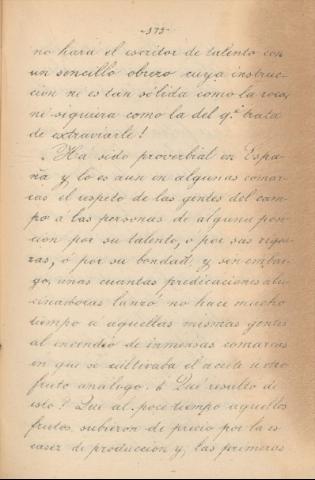 -373-
no hará el escritor de talento con
un sencillo obrero cuya instruc-
cion ni es tan sólida como la roca,
ni siquiera como la del q.e trata
de extraviarle!
Ha sido proverbial en Espa-
ña y lo es aun en algunas comar-
cas el respeto de las gentes del cam-
po á las personas de alguna posi-
cion por su talento, ó por sus rique-
zas, ó por su bondad, y sin embar-
go, unas cuantas predicaciones alu-
cinadoras lanzó no hace mucho
tiempo á aquellas mismas gentes
al incendio de inmensas comarcas
en que se cultivaba el aceite ú otro
fruto análogo. ¿Qué resultó de
esto? Que al poco tiempo aquellos
frutos subieron de precio por la es
casez de produccion y, las primeras